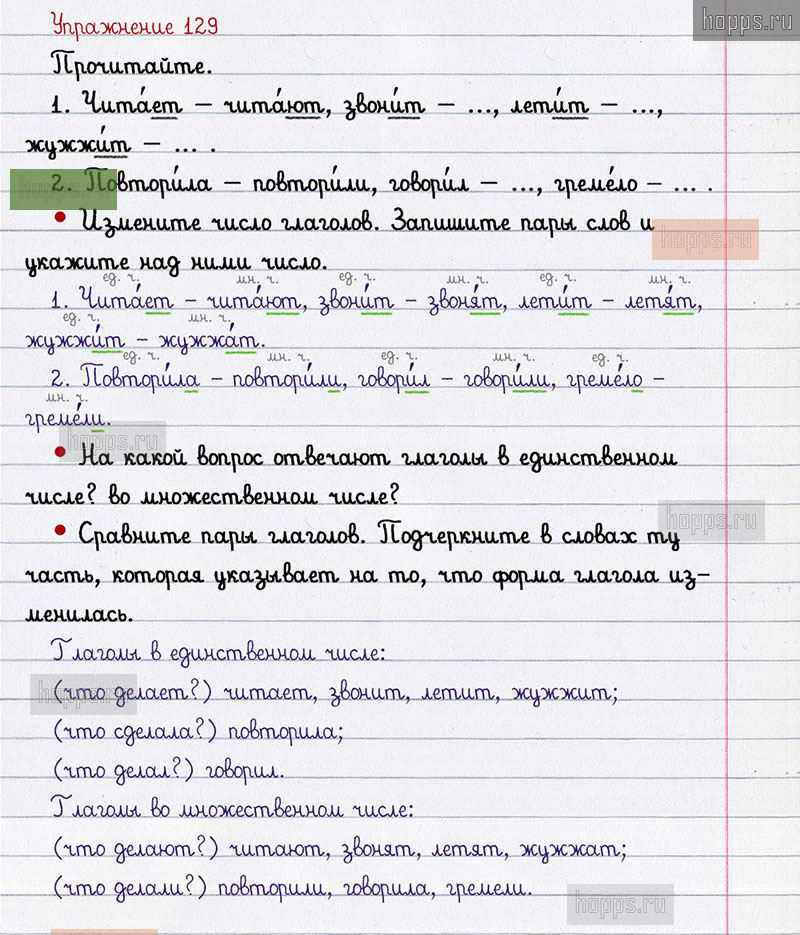 hopps.ru
Упражнение 129
Прочитайте.
1. Чита́ет – чита́ют, звони́т – ..., лети́т – ...,
жужжи́т – ... .
hopps.ru
2. Повтори́ла – повтори́ли, говори́л – ..., греме́ло – ... .
• Измените число глаголов. Запишите пары слов и
hopps.ru
укажите над ними число.
ед. ч. мн. ч. ед. ч. мн. ч. ед. ч. мн. ч.
1. Чита́ет – чита́ют, звони́т – звоня́т, лети́т – летя́т,
ед. ч. мн. ч.
жужжи́т – жужжа́т.
ед. ч. мн. ч. ед. ч. мн. ч. ед. ч.
2. Повтори́ла – повтори́ли, говори́л – говори́ли, греме́ло –
мн. ч.
греме́ли.
hopps.ru
• На какой вопрос отвечают глаголы в единственном
числе? во множественном числе?
hopps.ru
• Сравните пары глаголов. Подчеркните в словах ту
часть, которая указывает на то, что форма глагола из–
менилась.
Глаголы в единственном числе:
hopps.ru
(что делает?) читает, звонит, летит, жужжит;
(что сделала?) повторила;
(что делал?) говорил.
Глаголы во множественном числе:
(что делают?) читают, звонят, летят, жужжат;
(что делали?) повторили, говорила, гремели.
hopps.ru